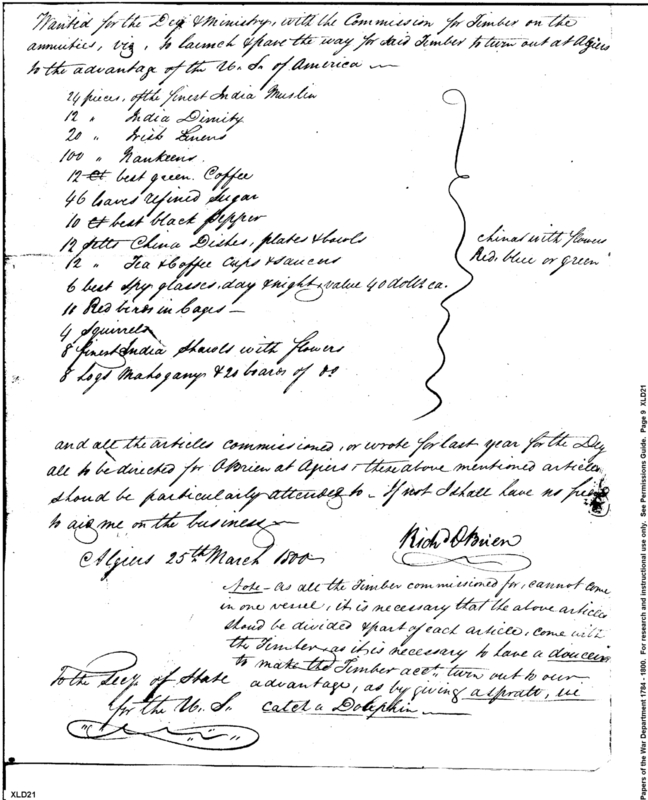 Wanted for the Dey & Ministry, with the Commission for Timber on the
annuities, viz, to launch & pave the way for said Timber to turn out at Algiers
to the advantage of the U. Ss. of America
24 pieces, of the finest India Muslin
12 " India Dimity
20 " Irish Linens
100 " Nankeens.
12 Ct best green. Coffee
46 loaves refined Sugar
10 Ct best black Pepper
12 setts China Dishes, plates & bowls
12 " Tea & Coffee Cups & saucers
6 best Spy glasses, day & night, value 40 dolls ea.
10 Red birds in Cages —
4 Squirrels
8 finest India Shawls with flowers
8 Logs Mahogany & 20 boards of Do
chinas with flowers
Red, blue or green
and all the articles commissioned, or wrote for last year for the Dey
all to be directed for OBrien at Algiers & these above mentioned articles
should be particularly attended to - If not I shall have no
to aid me on the business
Algiers 25th March 1800
Richd OBrien
Note - as all the Timber commissioned for, cannot come
in one vessel, it is necessary that the above articles
should be divided & part of each article, come with
the Timber, as it is necessary to have a douceur
to make the Timber acct. turn out to our
advantage, as by giving a sprat, we
catch a Dolphin
To the Secy. of State
for the U. S.
XLD21
Papers of the War Department 1784 - 1800. For research and instructional use only. See Permissions Guide. Page 9 XLD21